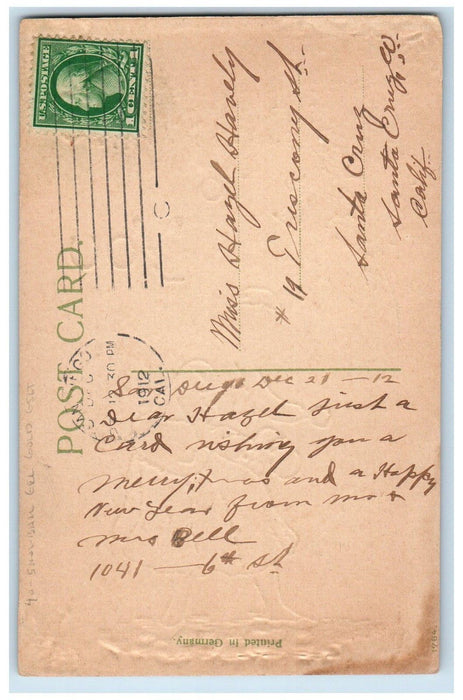 U.S. POSTAGE
1 CENT 1
POST CARD.
12 30 PM
1912
CAL.
C
Miss Hazel Havely
# 19 Eriscony St.
Santa Cruz
Santa Cruz Co
Calif
San Diego Dec 21 - 12
Dear Hazel Just a
Card wishing you a
merry Xmas and a Happy
New Year from Mr &
Mrs Bell
1041 - 6th St
Printed in Germany.